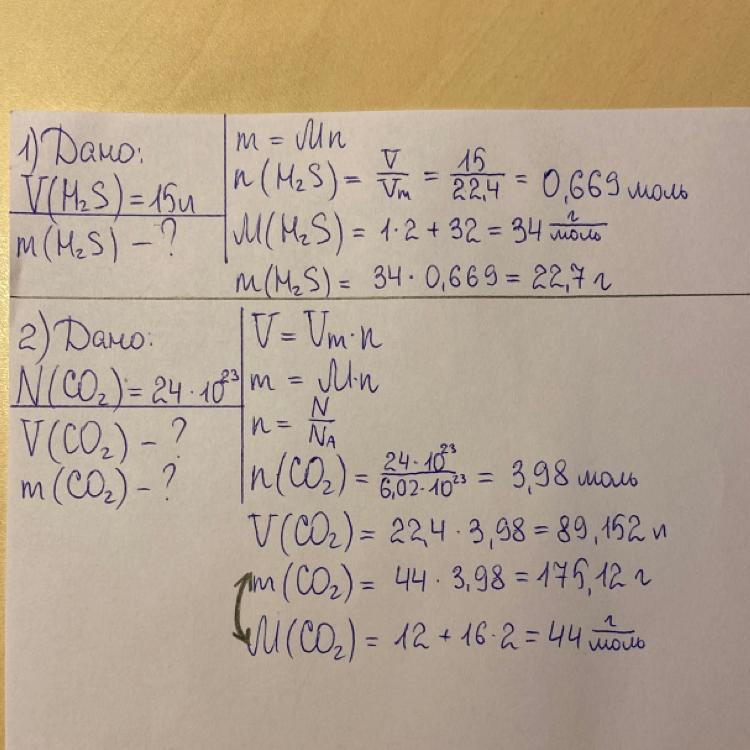 1) Дано:
V(H₂S) = 15л
m(H₂S) - ?
m = Mn
n(H₂S) = V/Vm = 15/22,4 = 0,669 моль
M(H₂S) = 1·2 + 32 = 34 г/моль
m(H₂S) = 34 · 0,669 = 22,7 г
2) Дано:
N(CO₂) = 24·10²³
V(CO₂) - ?
m(CO₂) - ?
V = Vm·n
m = M·n
n = N/NA
n(CO₂) = 24·10²³/6,02·10²³ = 3,98 моль
V(CO₂) = 22,4 · 3,98 = 89,152 л
m(CO₂) = 44 · 3,98 = 175,12 г
M(CO₂) = 12 + 16·2 = 44 г/моль